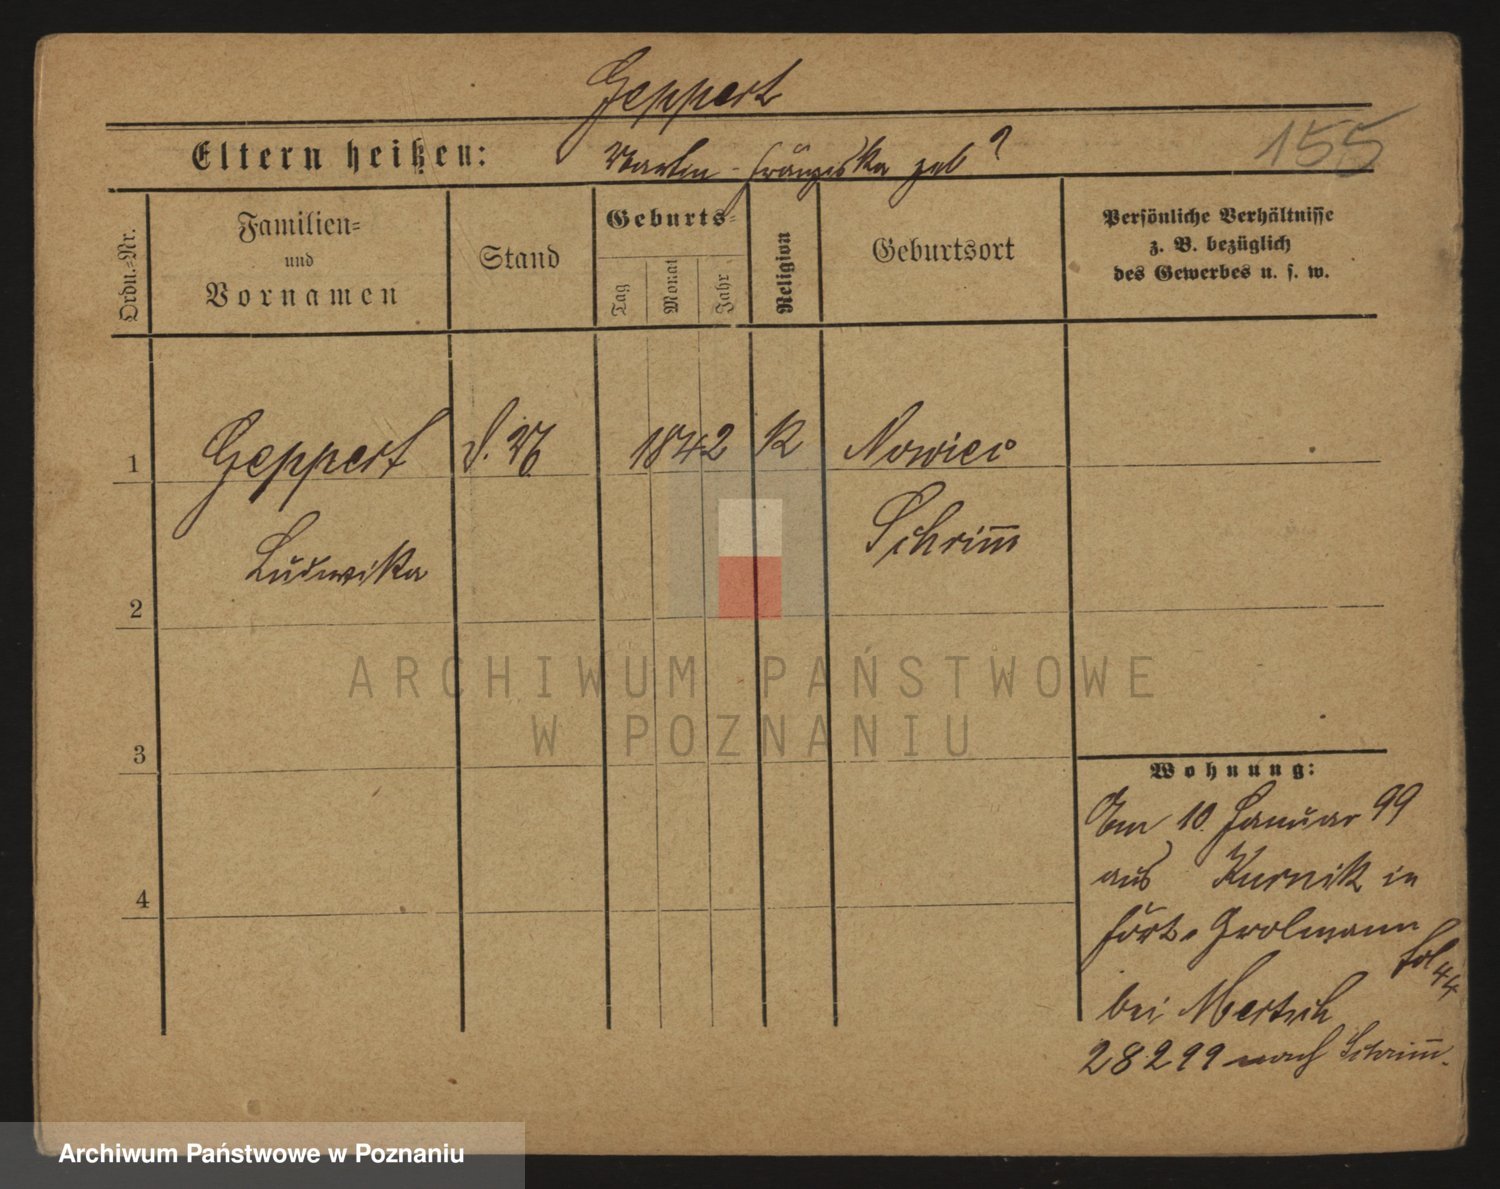 Geppert
155
Eltern heißen: Martin - Franziska geb ?
Ordn.-Nr.
Familien-
und
Vornamen
Stand
Geburts-
Tag
Monat
Jahr
Religion
Geburtsort
Persönliche Verhältnisse
z. B. bezüglich
des Gewerbes u. s. w.
1 Geppert 1842 K Nowiec
Schrimm
Ludwika
2
3
4
Wohnung:
Am 10 Januar 99
aus Kurnik in
Fort-Grolmann
Fol 44
bei Mertsch
28 2 99 nach Schrimm.
ARCHIWUM PAŃSTWOWE
W POZNANIU
Archiwum Państwowe w Poznaniu